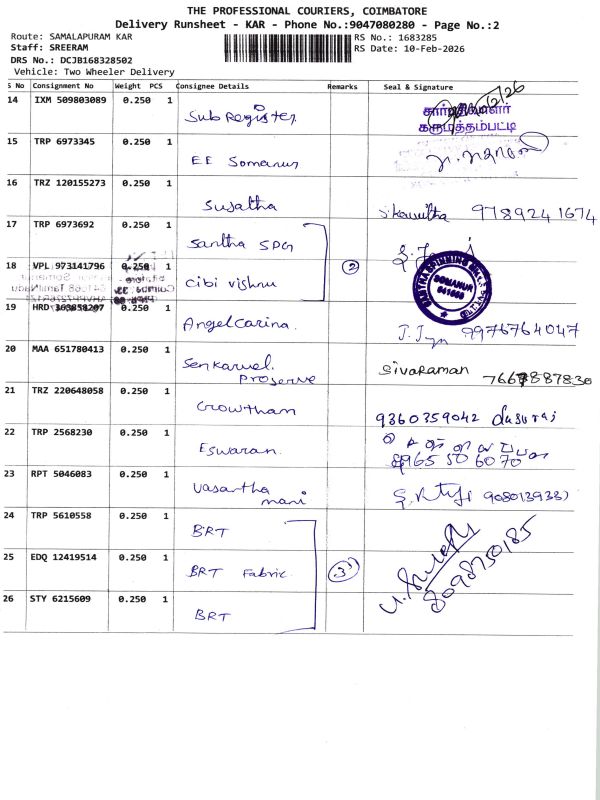 THE PROFESSIONAL COURIERS, COIMBATORE
Delivery Runsheet - KAR - Phone No.:9047080280 - Page No.:2
Route: SAMALAPURAM KAR
RS No.: 1683285
Staff: SREERAM
RS Date: 10-Feb-2026
DRS No.: DCJB168328502
Vehicle: Two Wheeler Delivery
S No Consignment No Weight PCS Consignee Details Remarks Seal & Signature
14 IXM 509803089 0.250 1 Sub Register
கருமத்தம்பட்டி
15 TRP 6973345 0.250 1 EE Somanur
16 TRZ 120155273 0.250 1 Sujatha 9789241674
17 TRP 6973692 0.250 1 Santha SPG
18 VPL 973141796 0.250 1 Cibi vishnu 2
SOMANUR
641668
19 HRD 0.250 1 AngelCarina. 9976764047
20 MAA 651780413 0.250 1 Senkarvel Proserve Sivaraman
21 TRZ 220648058 0.250 1 Growtham 9360359042
22 TRP 2568230 0.250 1 Eswaran.
23 RPT 5046083 0.250 1 Vasantha mani
24 TRP 5610558 0.250 1 BRT
25 EDQ 12419514 0.250 1 BRT Fabric 3 8098750185
26 STY 6215609 0.250 1 BRT